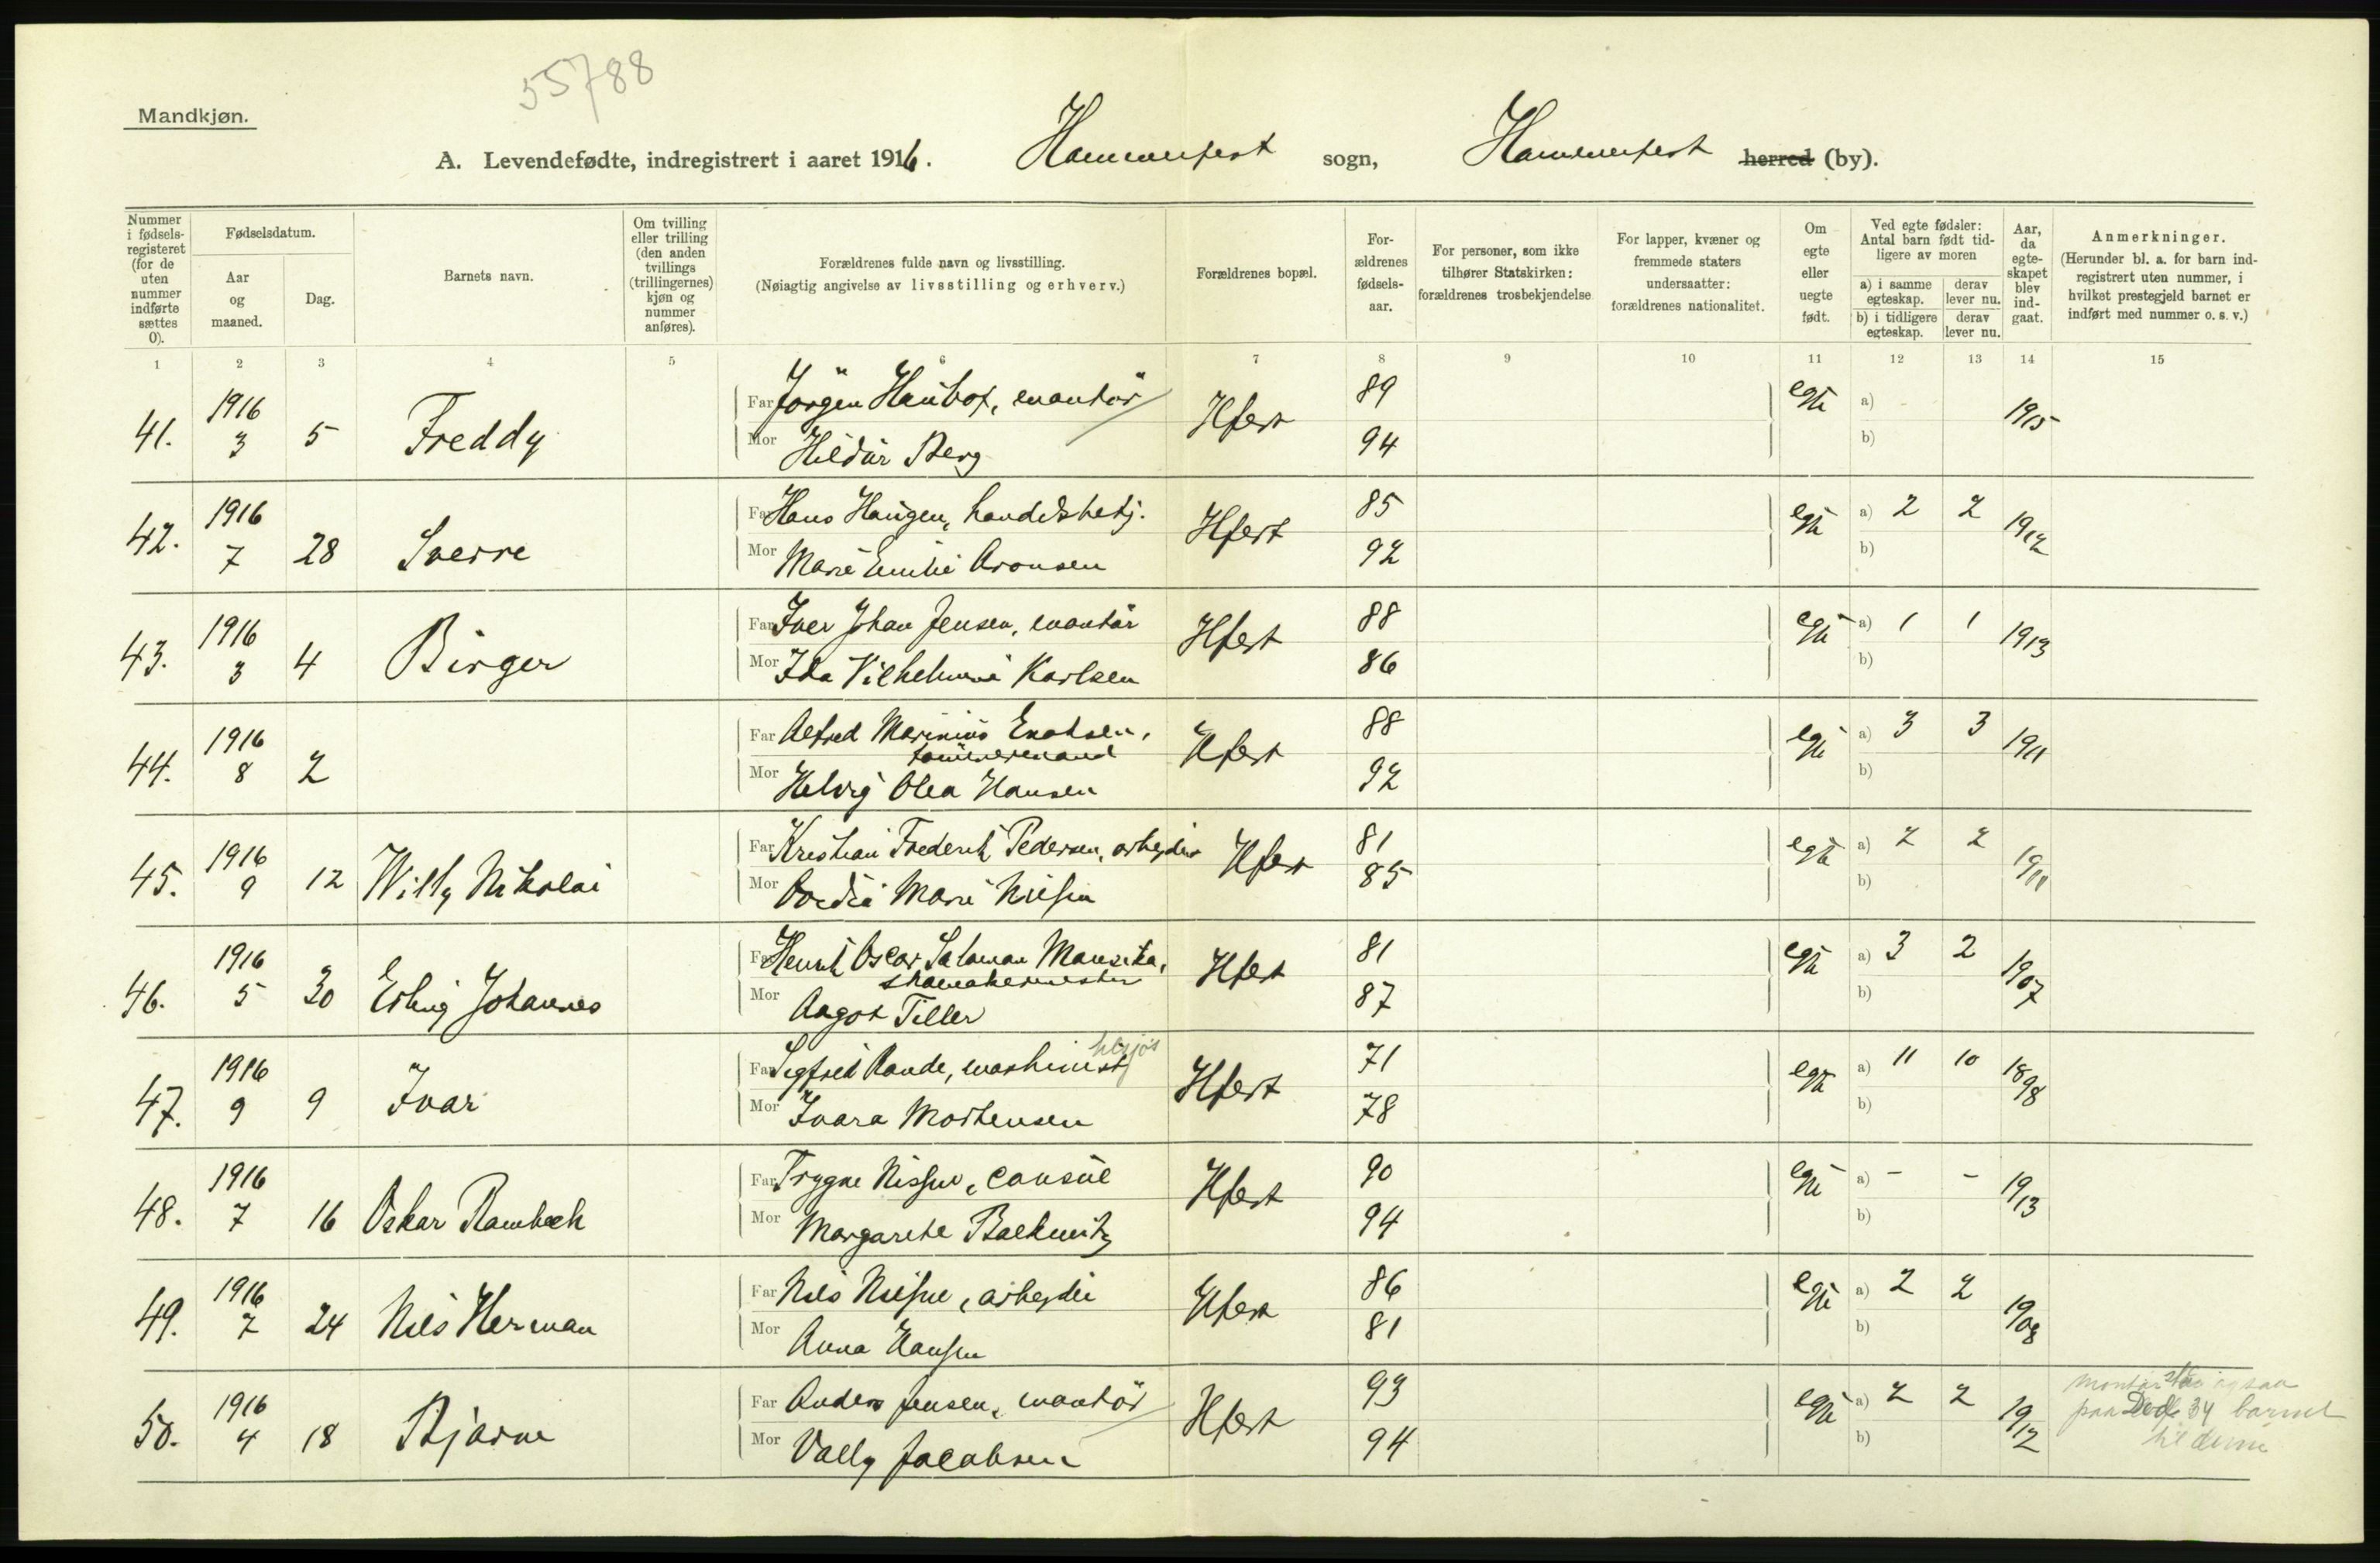 55788
Mandkjøn.
A. Levendefødte, indregistrert i aaret 1916. Hammerfest sogn, Hammerfest herred (by).
Nummer i fødsels-registeret (for de uten nummer indførte sættes 0).
Fødselsdatum.
Aar og maaned.
Dag.
Barnets navn.
Om tvilling eller trilling (den anden tvillings (trillingernes) kjøn og nummer anføres).
Forældrenes fulde navn og livsstilling.
(Nøiagtig angivelse av livsstilling og erhverv.)
Forældrenes bopæl.
For-ældrenes fødsels-aar.
For personer, som ikke tilhører Statskirken: forældrenes trosbekjendelse
For lapper, kvæner og fremmede staters undersaatter: forældrenes nationalitet.
Om egte eller uegte født.
Ved egte fødsler: Antal barn født tid-ligere av moren
a) i samme egteskap. derav lever nu.
b) i tidligere egteskap. derav lever nu.
Aar, da egte-skapet blev ind-gaat.
Anmerkninger.
(Herunder bl. a. for barn ind-registrert uten nummer, i hvilket prestegjeld barnet er indført med nummer o. s. v.)
1 2 3 4 5 6 7 8 9 10 11 12 13 14 15
41. 1916 3 5 Freddy Far Jörgen Haubot, montör Hfest 89 egte a) 1915
Mor Hildur Berg 94 b)
42. 1916 7 28 Sverre Far Hans Haugen, handelsbetj. Hfest 85 egte a) 2 2 1912
Mor Marie Emilie Aronsen 92 b)
43. 1916 3 4 Birger Far Iver Johan Jensen, montör Hfest 88 egte a) 1 1 1913
Mor Ida Vilhelmine Karlsen 86 b)
44. 1916 8 2 Far Alfred Marinius Enoksen, Hfest 88 egte a) 3 3 1911
tømmermand
Mor Helvig Olea Hansen 92 b)
45. 1916 9 12 Willy Nikolai Far Kristian Frederik Pedersen, arbeyder Hfest 81 egte a) 2 2 1911
Mor Ovedia Marie Nilsen 85 b)
46. 1916 5 30 Erling Johannes Far Henrik Oscar Salomon Mauseta, Hfest 81 egte a) 3 2 1907
skomakermester
Mor Aagot Tiller 87 b)
47. 1916 9 9 Ivar Far Sigfred Rande, maskinist Hfest 71 egte a) 11 10 1898
Mor Ivara Mortensen 78 b)
48. 1916 7 16 Oskar Rambech Far Trygve Nissen, consul Hfest 90 egte a) - - 1913
Mor Margarethe Backwitz 94 b)
49. 1916 7 24 Nils Herman Far Nils Nilsen, arbeyder Hfest 86 egte a) 2 2 1908
Mor Anna Hansen 81 b)
50. 1916 4 18 Bjarne Far Anders Jensen, montör Hfest 93 egte a) 2 2 1912
Mor Vally Jacobsen 94 b)
montør staar ogsaa
paa Døds 34 barnet
til denne